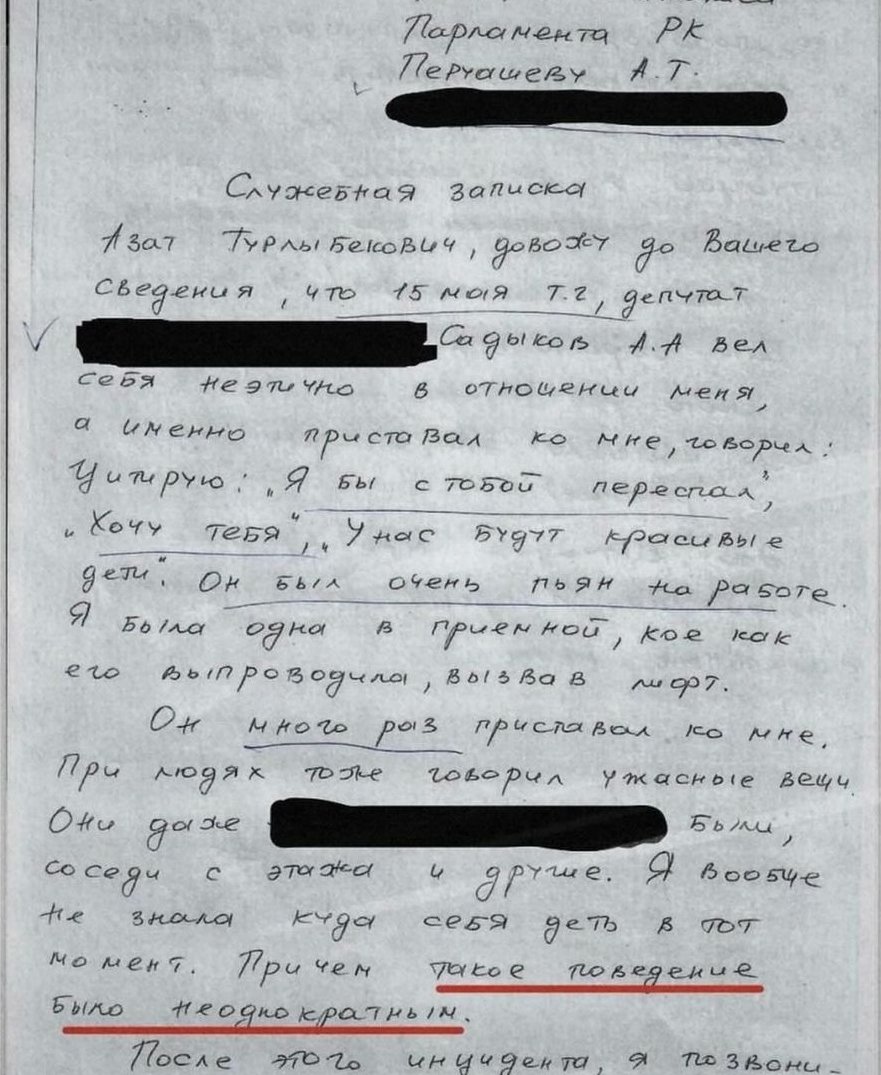 Парламента РК
Перуашеву А.Т.
Служебная записка
Азат Турлыбекович, довожу до Вашего
сведения, что 15 мая т.г, депутат
Садыков А.А вел
себя неэтично в отношении меня,
а именно приставал ко мне, говорил:
Цитирую: „Я бы с тобой переспал”,
„Хочу тебя“, „У нас будут красивые
дети“. Он был очень пьян на работе.
Я была одна в приемной, кое как
его выпроводила, вызвав лифт.
Он много раз приставал ко мне.
При людях тоже говорил ужасные вещи
Они даже были,
соседи с этажа и другие. Я вообще
не знала куда себя деть в тот
момент. Причем такое поведение
было неоднократным.
После этого инцидента, я позвони-